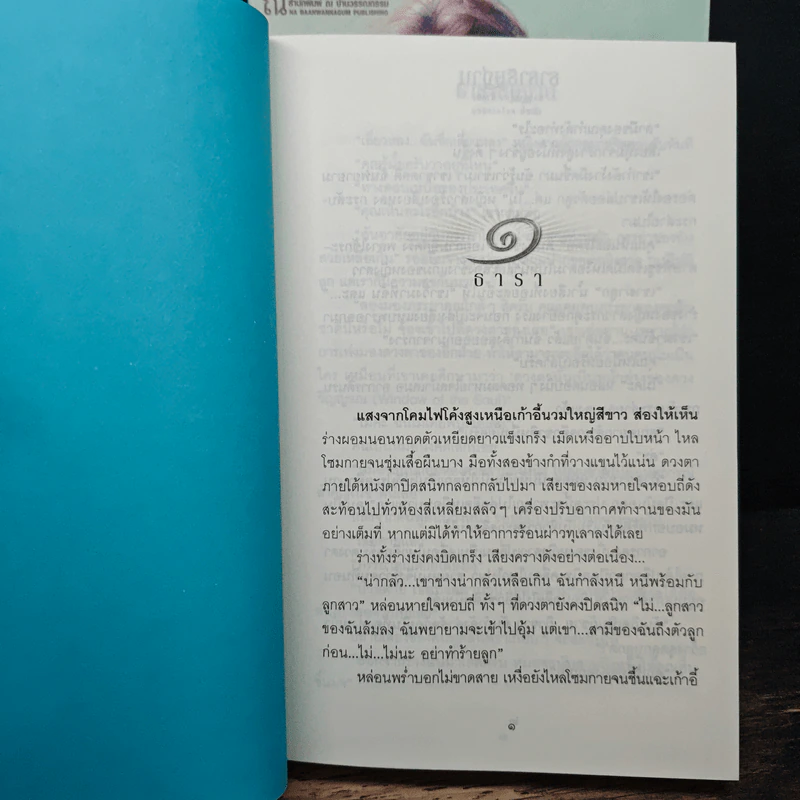 สำนักพิมพ์ ณ บ้านวรรณกรรม
NA BAANWANNAGUM PUBLISHING
๑
ธารา
แสงจากโคมไฟโค้งสูงเหนือเก้าอี้นวมใหญ่สีขาว ส่องให้เห็น
ร่างผอมนอนทอดตัวเหยียดยาวแข็งเกร็ง เม็ดเหงื่ออาบใบหน้า ไหล
โซมกายจนชุ่มเสื้อผืนบาง มือทั้งสองข้างกำที่วางแขนไว้แน่น ดวงตา
ภายใต้หนังตาปิดสนิทกลอกกลับไปมา เสียงของลมหายใจหอบถี่ดัง
สะท้อนไปทั่วห้องสี่เหลี่ยมสลัวๆ เครื่องปรับอากาศทำงานของมัน
อย่างเต็มที่ หากแต่มิได้ทำให้อาการร้อนผ่าวทุเลาลงได้เลย
ร่างทั้งร่างยังคงบิดเกร็ง เสียงครางดังอย่างต่อเนื่อง...
“น่ากลัว...เขาช่างน่ากลัวเหลือเกิน ฉันกำลังหนี หนีพร้อมกับ
ลูกสาว” หล่อนหายใจหอบถี่ ทั้งๆ ที่ดวงตายังคงปิดสนิท “ไม่...ลูกสาว
ของฉันล้มลง ฉันพยายามจะเข้าไปอุ้ม แต่เขา...สามีของฉันถึงตัวลูก
ก่อน...ไม่...ไม่นะ อย่าทำร้ายลูก”
หล่อนพร่ำบอกไม่ขาดสาย เหงื่อยังไหลโซมกายจนชื้นแฉะเก้าอี้
๑